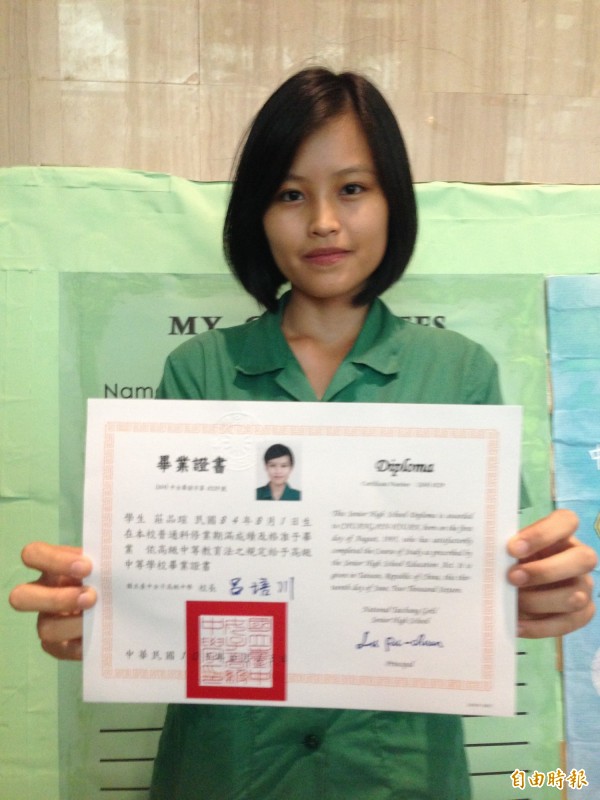 MY
Nam
畢業證書
Diploma
Certificate Number
學生 莊品瑄 民國84年8月1日生
在本校普通科修業期滿成績及格准予畢
業 依高級中等教育法之規定給予高級
中等學校畢業證書
This Senior High School Diploma is awarded
born on the first
day of August, 1995, who has satisfactorily
completed the Course of Study as prescribed
by the Senior High School Education Act. It is
given in Taiwan, Republic of China, this
day of June, Two Thousand Sixteen.
國立臺中女子高級中學 校長 呂培川
National Taichung Girls'
Senior High School
Principal
中華民國
自由時報